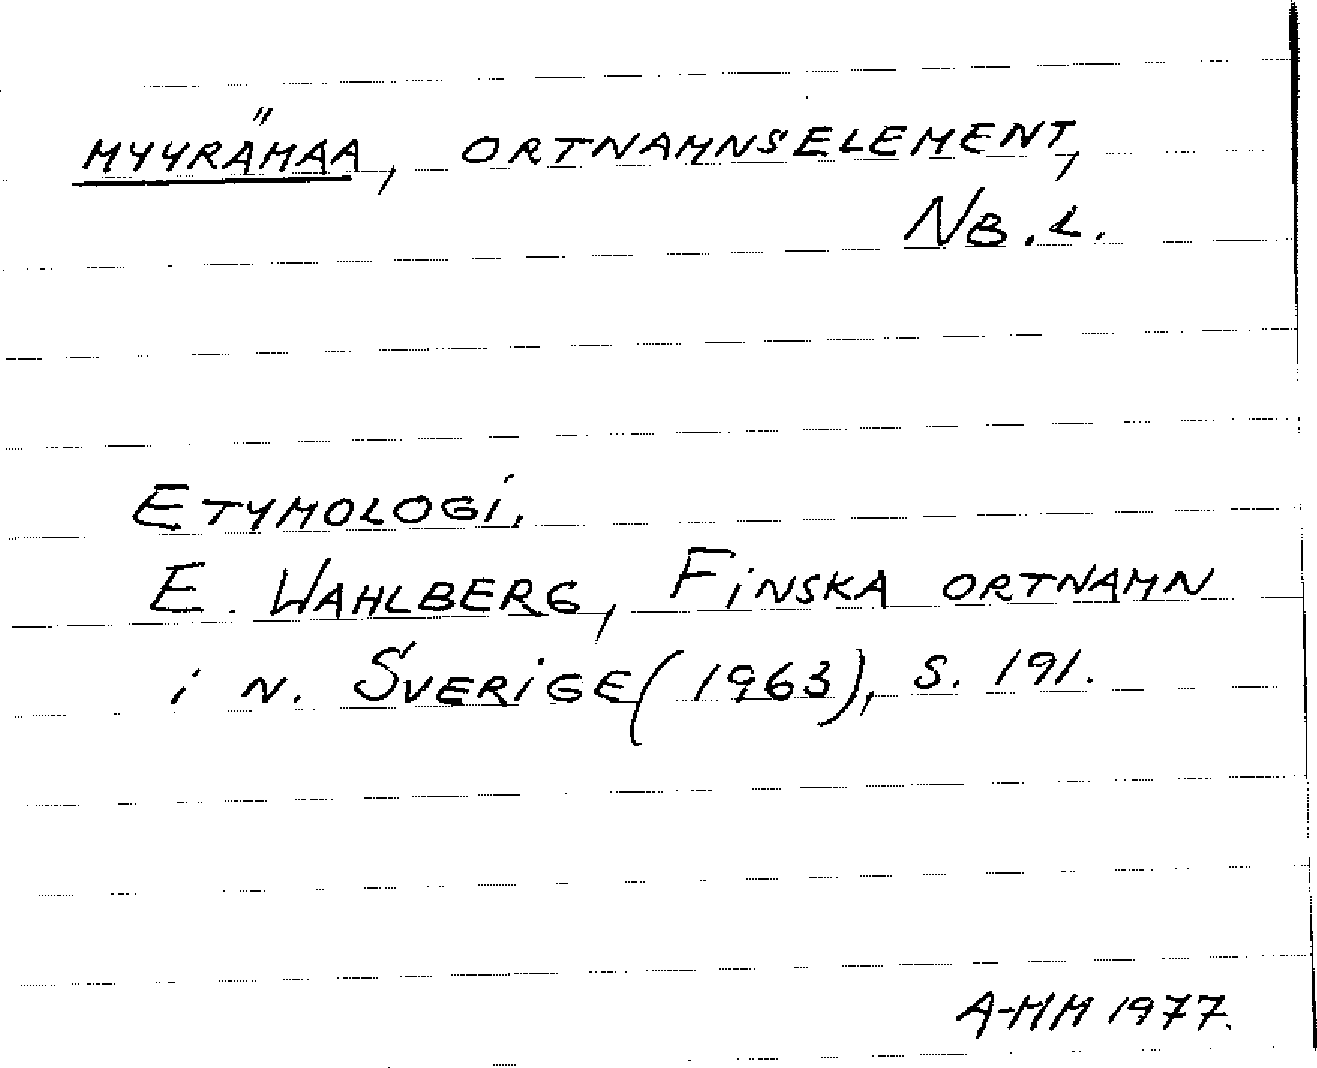 MYYRÄMAA, ORTNAMNSELEMENT,
NB.L.
ETYMOLOGI.
E. WAHLBERG, FINSKA ORTNAMN
i N. SVERIGE (1963), S. 191.
A-MM 1977.